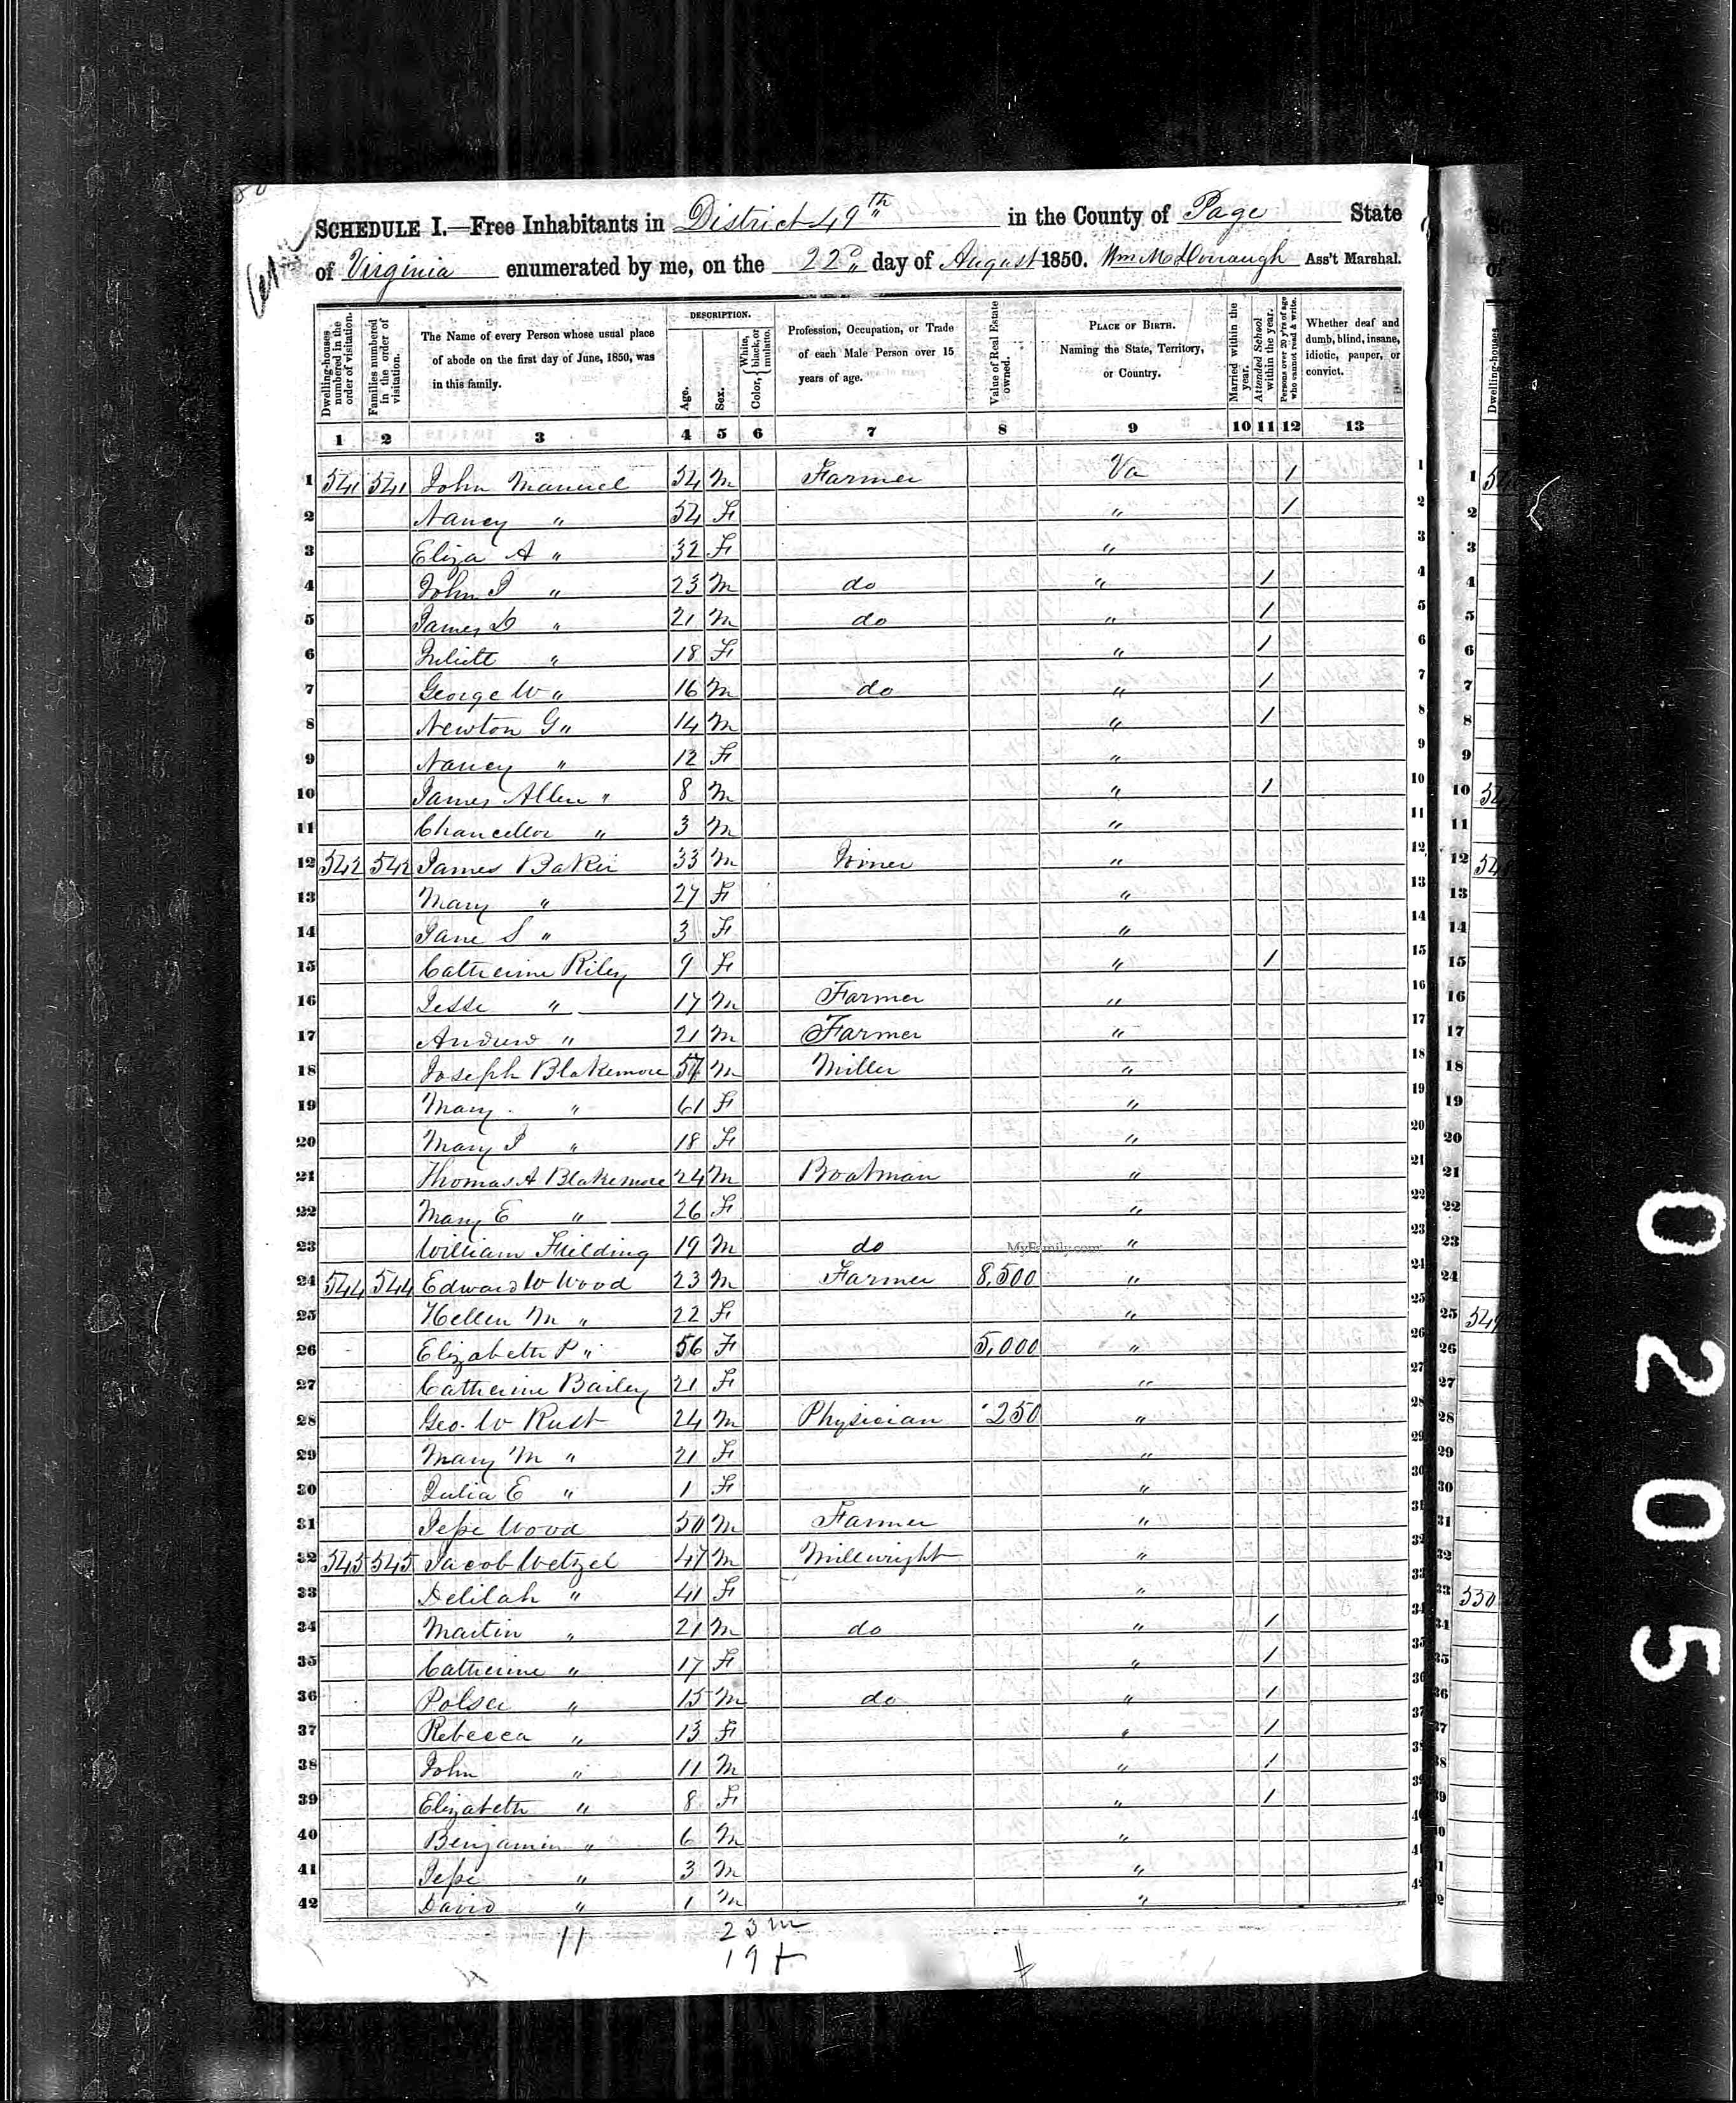 SCHEDULE I.—Free Inhabitants in District 49th in the County of Page State
of Virginia enumerated by me, on the 22d day of August 1850. Wm McDonaugh Ass't Marshal.
Dwelling-houses numbered in the order of visitation.
Families numbered in the order of visitation.
The Name of every Person whose usual place of abode on the first day of June, 1850, was in this family.
DESCRIPTION.
Age.
Sex.
Color, { White, black, or mulatto.
Profession, Occupation, or Trade of each Male Person over 15 years of age.
Value of Real Estate owned.
PLACE OF BIRTH. Naming the State, Territory, or Country.
Married within the year.
Attended School within the year.
Persons over 20 y'rs of age who cannot read & write.
Whether deaf and dumb, blind, insane, idiotic, pauper, or convict.
1 2 3 4 5 6 7 8 9 10 11 12 13
1 541 541 John Manuel 54 M Farmer Va 1 1
2 Nancy " 54 F " 1 2
3 Eliza A " 32 F " 3
4 John J " 23 M do " 1 4
5 James D " 21 M do " 1 5
6 Juliett " 18 F " 1 6
7 George W " 16 M do " 1 7
8 Newton G " 14 M " 1 8
9 Nancy " 12 F " 9
10 James Allen " 8 M " 1 10
11 Chancellor " 3 M " 11
12 542 542 James Baker 33 M Joiner " 12
13 Mary " 27 F " 13
14 Jane S " 3 F " 14
15 Catherine Riley 9 F " 1 15
16 Jesse " 17 M Farmer " 16
17 Andrew " 21 M Farmer " 17
18 Joseph Blakemore M Miller " 18
19 Mary " 61 F " 19
20 Mary J " 18 F " 20
21 Thomas A Blakemore 24 M Boatman " 21
22 Mary E " 26 F " 22
23 William Fielding 19 M do " 23
MyFamily.com
24 544 544 Edward W Wood 23 M Farmer 8,500 " 24
25 Hellen M " 22 F " 25
26 Elizabeth P " 56 F 5,000 " 26
27 Catherine Bailey 21 F " 27
28 Geo. W Rust 24 M Physician 250 " 28
29 Mary M " 21 F " 29
30 Julia E " 1 F " 30
31 Jesse Wood 50 M Farmer " 31
32 545 545 Jacob Wetzel 47 M Millwright " 32
33 Delilah " 41 F " 33
34 Martin " 21 M do " 1 34
35 Catherine " 17 F " 1 35
36 Polser " 15 M do " 1 36
37 Rebecca " 13 F " 1 37
38 John " 11 M " 1 38
39 Elizabeth " 8 F " 1 39
40 Benjamin " 6 M " 40
41 Jesse " 3 M " 41
42 David " 1 M " 42
11 23 m
19 f
0205